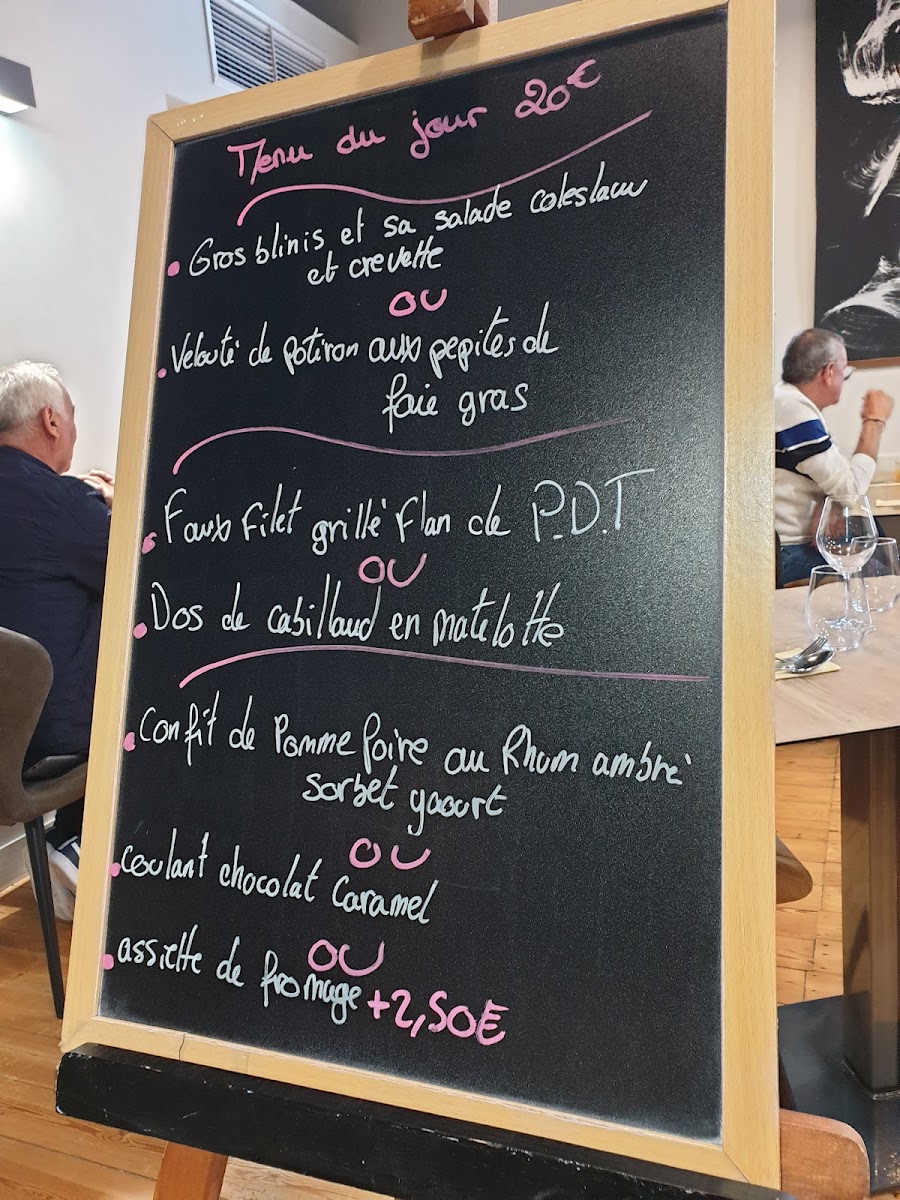 Menu du jour 20€
• Gros blinis et sa salade coleslaw
et crevette
OU
• Velouté de potiron aux pepites de
foie gras
• Faux Filet grillé Flan de P.D.T
OU
• Dos de cabillaud en matelotte
• Confit de Pomme Poire au Rhum ambré
sorbet yaourt
OU
• coulant chocolat Caramel
OU
• assiette de fromage +2,50€